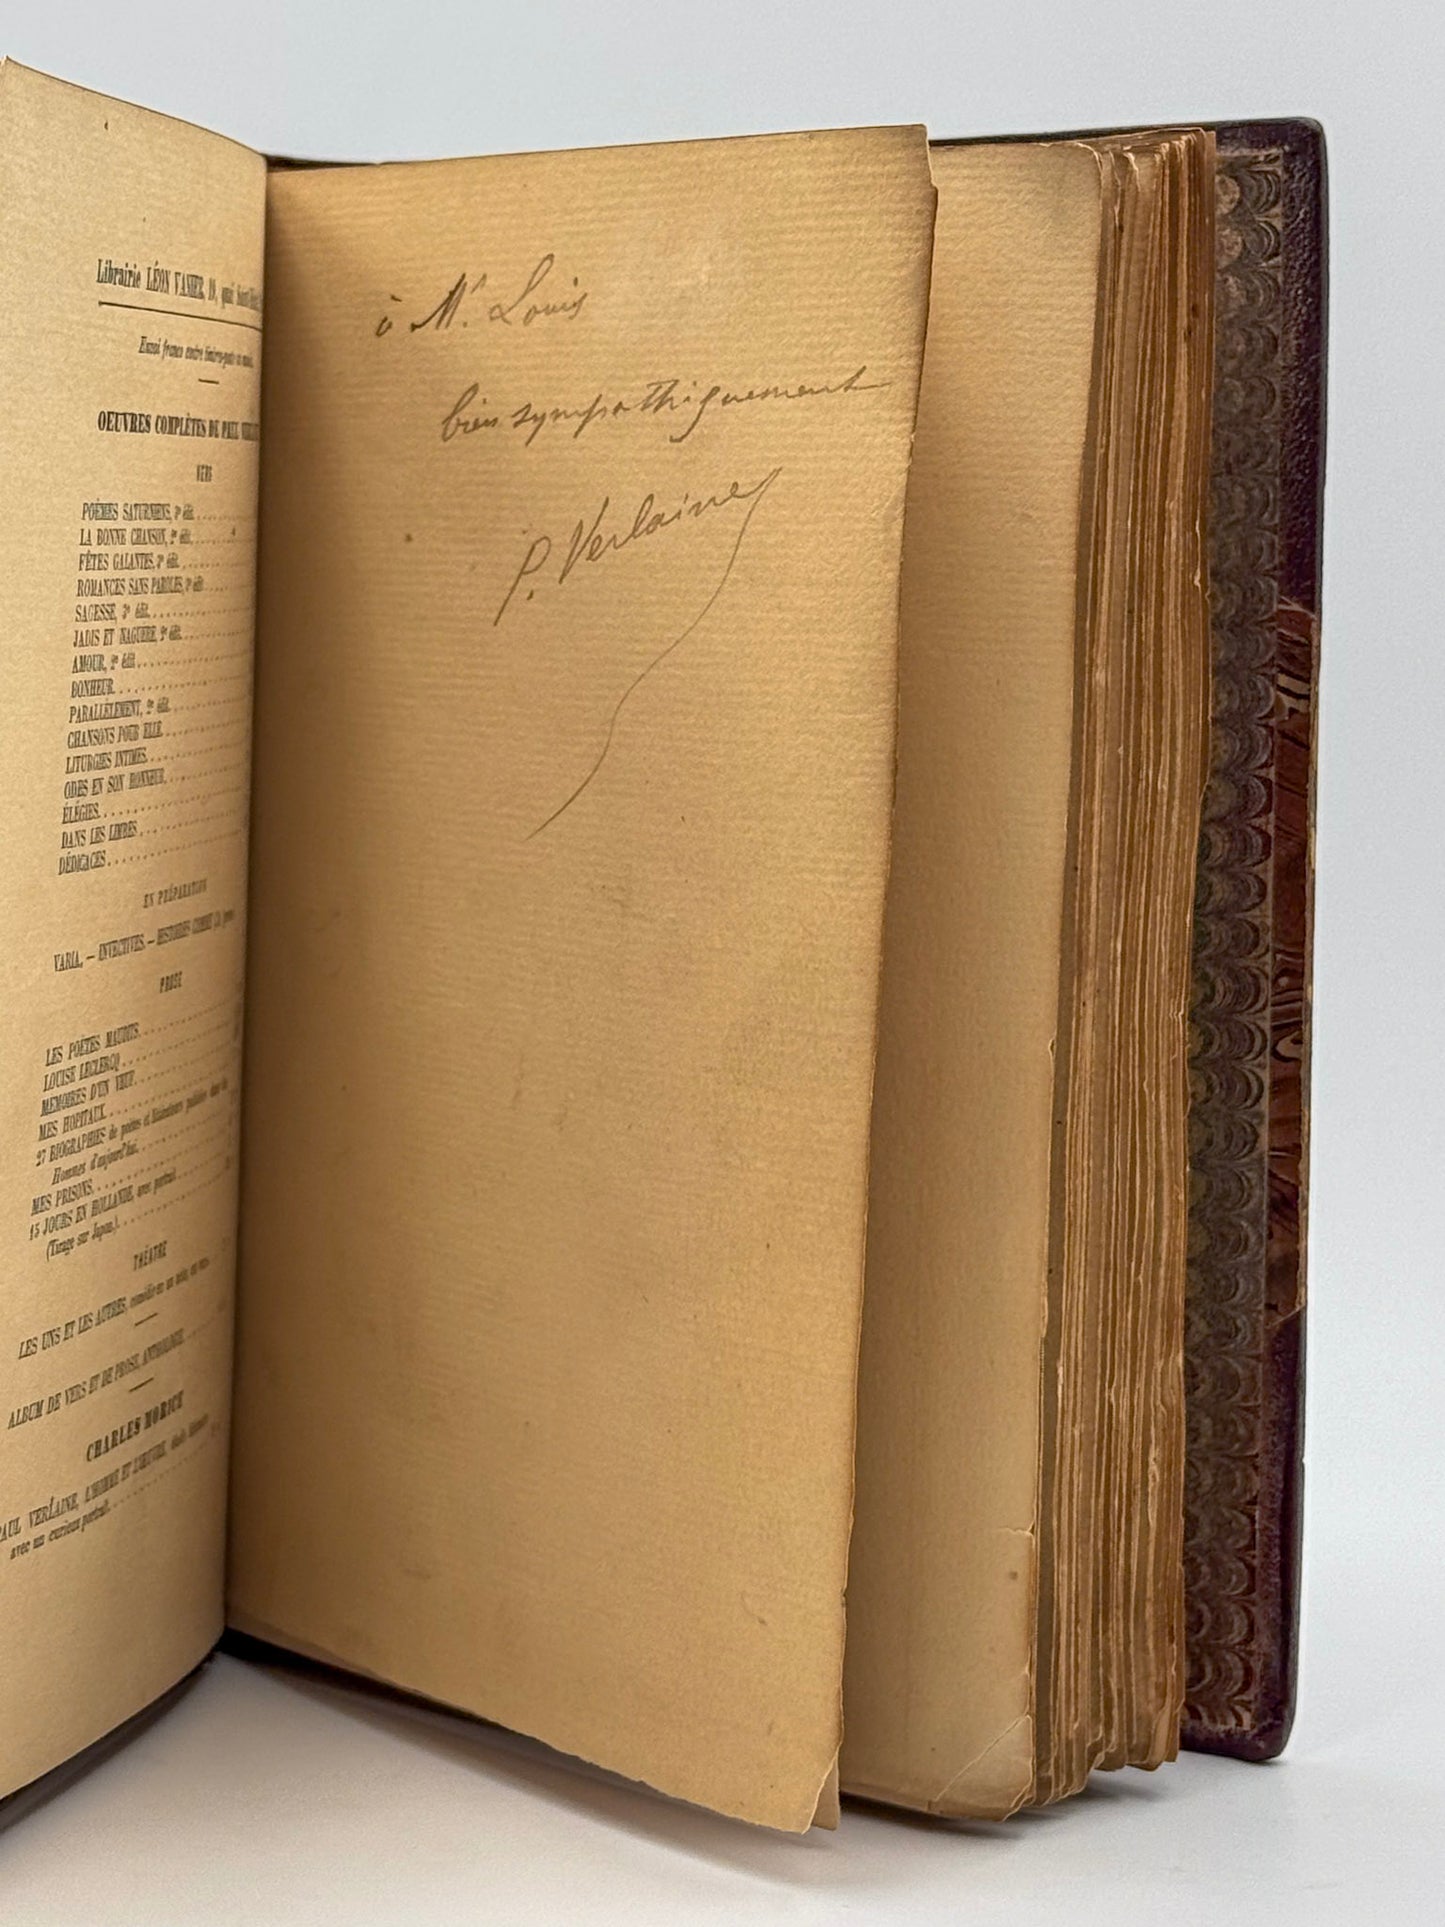 Librairie LÉON VANIER, 19, quai Saint
Envoi franco contre timbres-poste ou mandat.
OEUVRES COMPLÈTES DE PAUL
VERS
POÈMES SATURNIENS, 3e édit.
LA BONNE CHANSON, 2e édit.
FÊTES GALANTES, 3e édit.
ROMANCES SANS PAROLES, 3e édit.
SAGESSE, 3e édit.
JADIS ET NAGUÈRE, 2e édit.
AMOUR, 2e édit.
BONHEUR.
PARALLÈLEMENT, 2e édit.
CHANSONS POUR ELLE.
LITURGIES INTIMES.
ODES EN SON HONNEUR.
ÉLÉGIES.
DANS LES LIMBES
DÉDICACES
EN PRÉPARATION
VARIA. — INVECTIVES. — HISTOIRES COMME
PROSE
LES POÈTES MAUDITS.
LOUISE LECLERCQ
MÉMOIRES D'UN VEUF.
MES HOPITAUX.
27 BIOGRAPHIES de poètes et littérateurs publiées dans les
Hommes d'aujourd'hui.
MES PRISONS.
15 JOURS EN HOLLANDE, avec portrait
(Tirage sur Japon.)
THÉATRE
LES UNS ET LES AUTRES, comédie en un acte, en vers
ALBUM DE VERS ET DE PROSE, ANTHOLOGIE.
CHARLES MORICE
PAUL VERLAINE, L'HOMME ET L'ŒUVRE,
avec un curieux portrait.
à Mr. Louis
bien sympathiquement
P. Verlaine